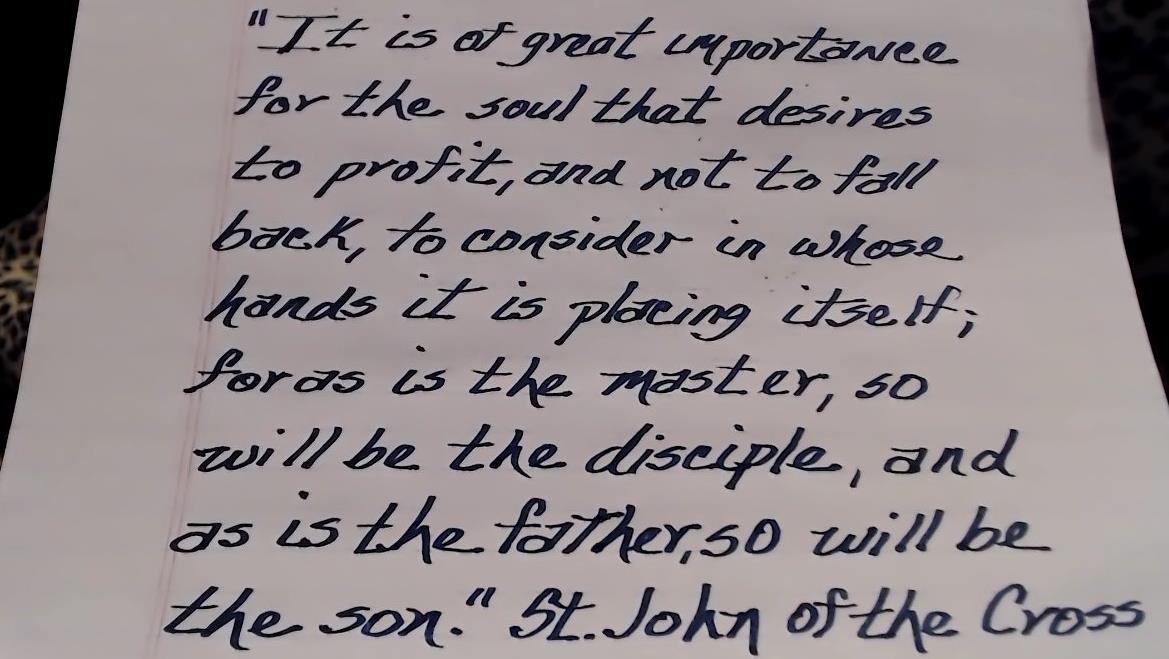 "It is of great importance
for the soul that desires
to profit, and not to fall
back, to consider in whose
hands it is placing itself;
for as is the master, so
will be the disciple, and
as is the father, so will be
the son." St. John of the Cross